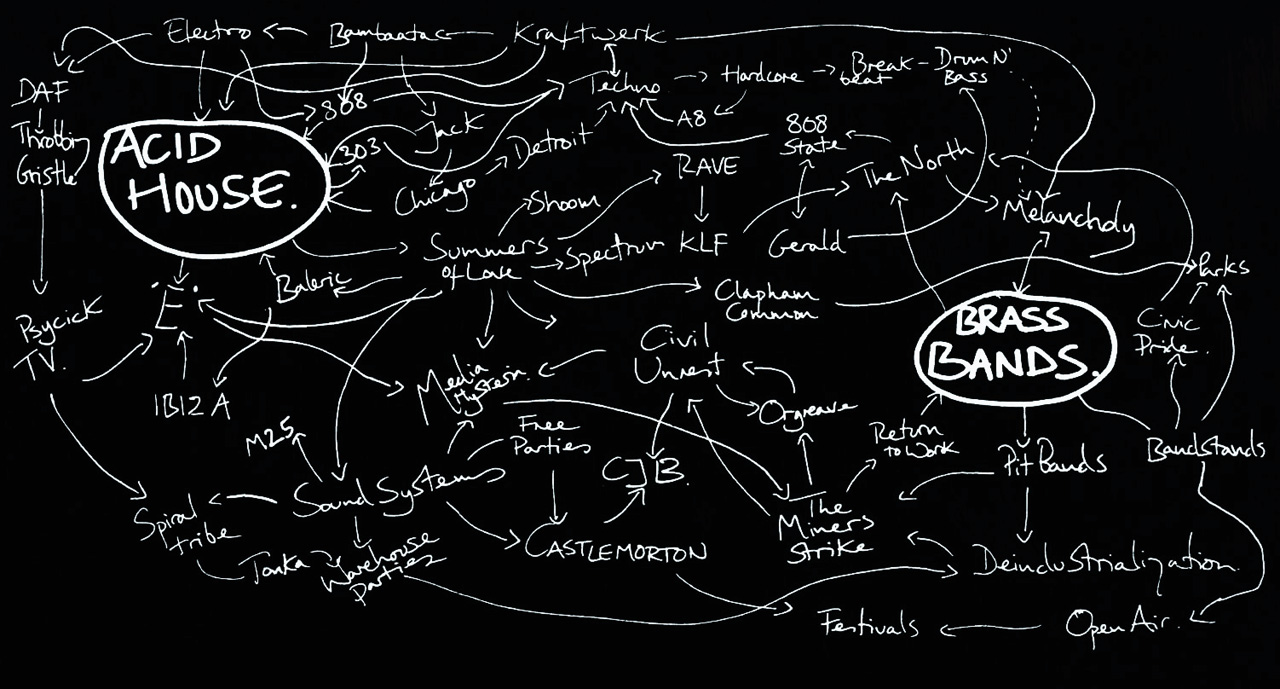 Electro
Bambaataa
Kraftwerk
DAF
808
Techno
Hardcore
Break
beat
Drum N'
Bass
Throbbing
Gristle
ACID
HOUSE.
303
Jack
Detroit
A8
808
State
RAVE
The North
Chicago
Shoom
Melancholy
Summers
of Love
Spectrum
KLF
Gerald
Parks
Baleric
.E.
Clapham
Common
BRASS
BANDS.
Civic
Pride.
Psycick
TV.
Civil
Unrest
IBIZA
Media
Orgreave
M25
Free
Parties
Return
to Work
Bandstands
CJB.
Pit Bands
Sound Systems
Spiral
tribe
The
Miners
Strike
Tonka
Warehouse
Parties
CASTLEMORTON
Deindustrialization.
Festivals
Open Air.